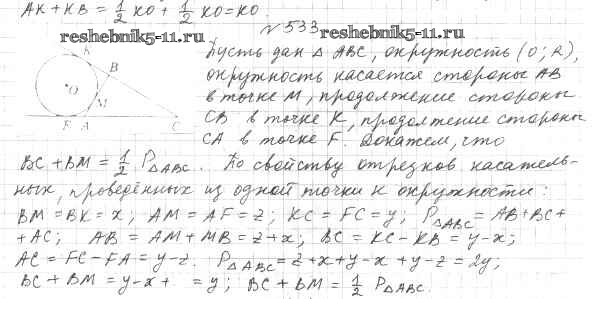 AK + KB = 1/2 KO + 1/2 KO = KO.
reshebnik5-11.ru
№533
reshebnik5-11.ru
K
B
O
M
F A C
Пусть дан △ ABC, окружность (O; R),
окружность касается стороны AB
в точке M, продолжение стороны
CB в точке K, продолжение стороны
CA в точке F. Докажем, что
BC + BM = 1/2 P△ABC. По свойству отрезков касатель-
ных, проведённых из одной точки к окружности:
BM = BK = x; AM = AF = z; KC = FC = y; P△ABC = AB + BC +
+ AC; AB = AM + MB = z + x; BC = KC - KB = y - x;
AC = FC - FA = y - z. P△ABC = z + x + y - x + y - z = 2y;
BC + BM = y - x + = y; BC + BM = 1/2 P△ABC.